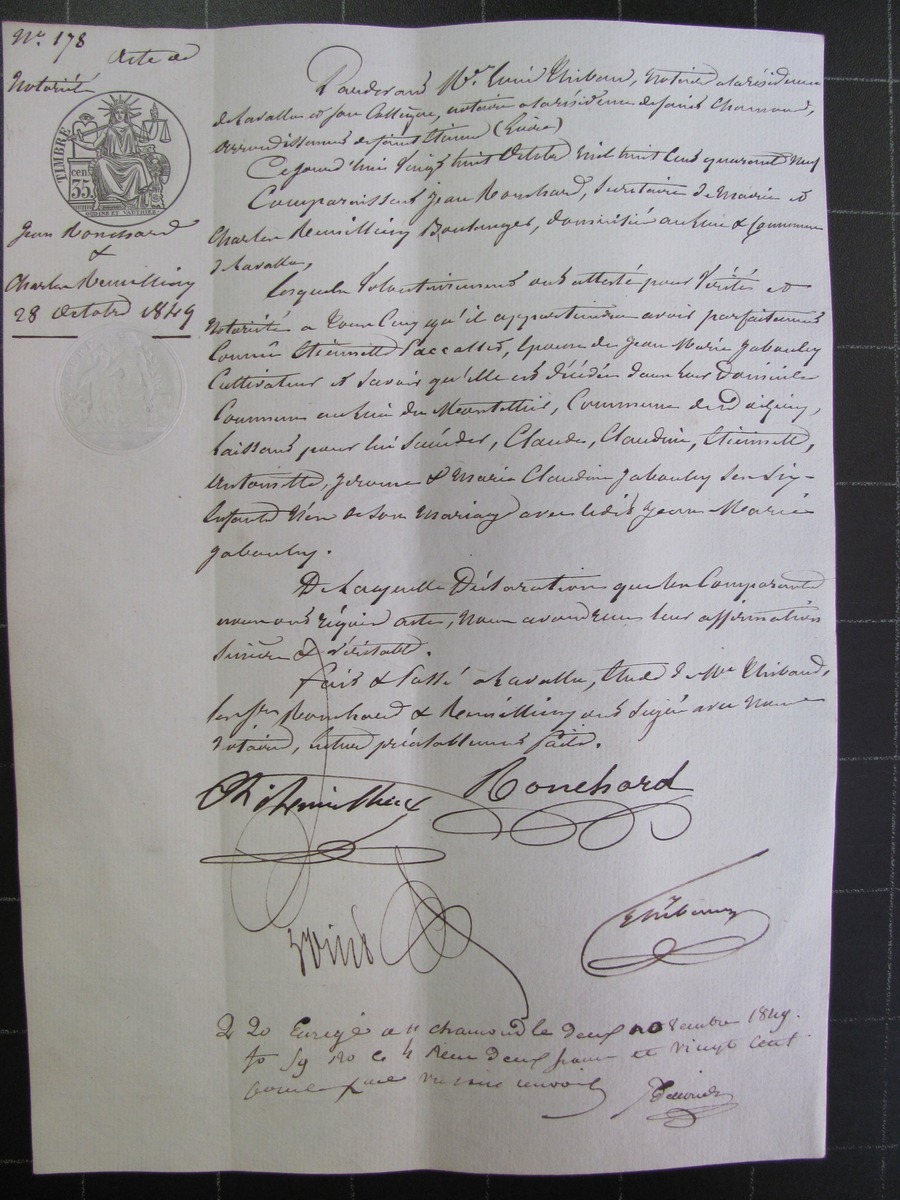 N° 178
Acte de
Notoriété
TIMBRE
35 cen
OUDINE ET VAUTHIER
Jean Ronchard
&
Charles Remillieux
28 Octobre 1849
Pardevant Me Thibaud, notaire à la résidence
de Lavalla et son Collègue, notaire à la résidence de Saint Chamond,
arrondissement de Saint Etienne (Loire)
Ce jourd'hui Vingt huit Octobre Mil huit Cent quarante Neuf
Comparaissent Jean Ronchard, Secrétaire de Mairie et
Charles Remillieux Boulanger, domicilié au lieu & Commune
de Lavalla,
Lesquels Volontairement ont attesté pour Vérité et
Notoriété à tous Ceux qu'il appartiendra avoir parfaitement
Connu Etiennette, Epouse de Jean Marie Jaboulay
Cultivateur et Savoir qu'elle est décédée dans leur Domicile
Commun au lieu du Commune de
laissant pour lui Succéder, Claude, Claudine, Etiennette,
Antoinette, Jerome & Marie Claudine Jaboulay Ses Six
Enfants Nés de Son Mariage avec ledit Jean Marie
Jaboulay.
De Laquelle Déclaration que les Comparants
nous ont requis acte, Nous avons reçu leur affirmation
Sincère & Véritable.
Fait & Passé à Lavalla, Etude de Me Thibaud,
les Srs Ronchard & Remillieux ont Signé avec Nous
Notaire, lecture préalablement faite.
Ch Remillieux Ronchard
Thibaud
Enregé à St chamond le deux novembre 1849.
fo 59 Ro c 4 Reçu deux francs et vingt cent